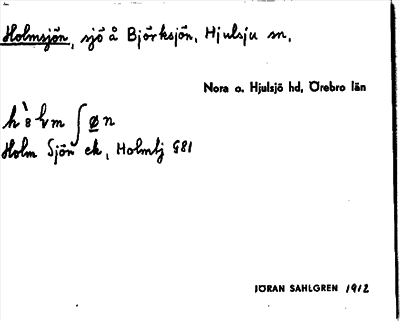 Holmsjön, sjö å Björksjön, Hjulsju sn,
Nora o. Hjulsjö hd, Örebro län
Holm Sjön ek, Holmtj G81
JÖRAN SAHLGREN 1912